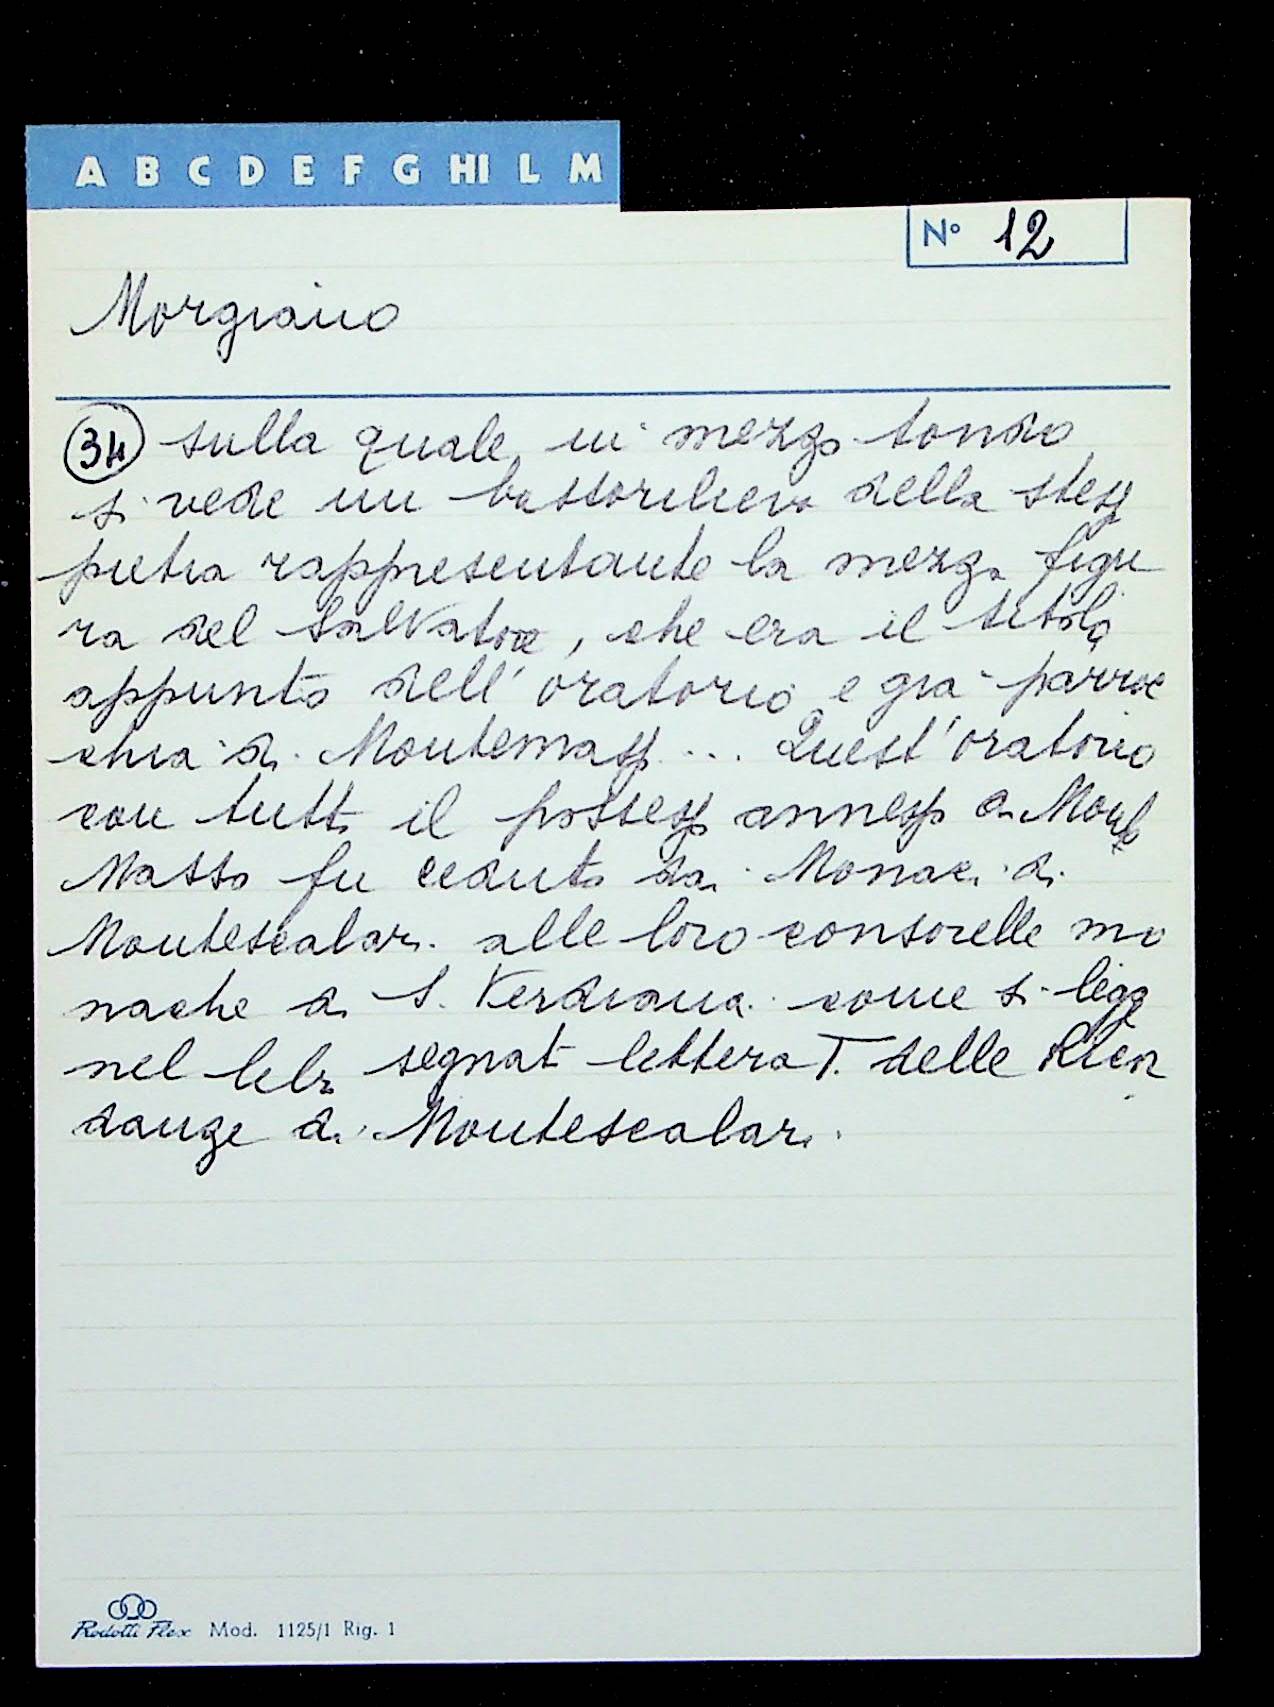 A B C D E F G HI L M
N° 12
Morgiano
34 sulla quale, in mezzo tondo
si vede un bassorilievo della stessa
pietra rappresentante la mezza figu
ra del Salvatore, che era il titolo
appunto dell'oratorio e già parroc
chia di Montemasso ... Quest'oratorio
con tutto il possesso annesso a Monte
Masso fu ceduto dai Monaci di
Montescalari alle loro consorelle mo
nache di S. Verdiana come si legge
nel libro segnato lettera T. delle Ricor
danze di Montescalari.
Rodotti Flex Mod. 1125/1 Rig. 1